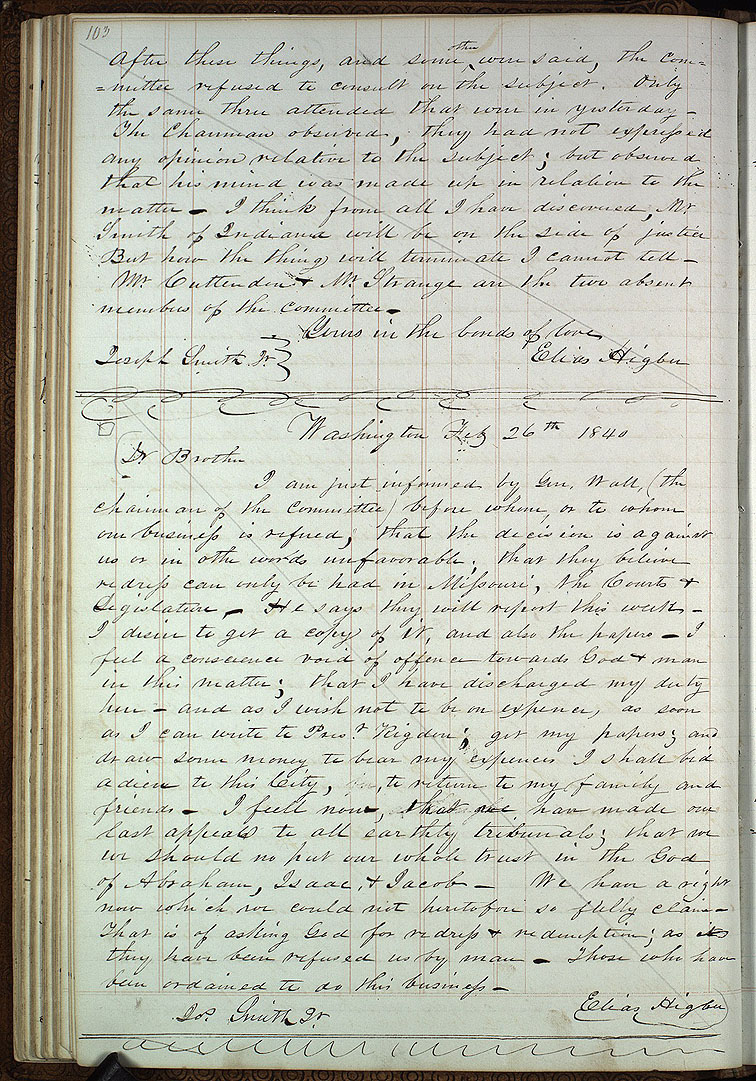 103
After these things, and some other were said, the com=
=mittee refused to consult on the subject. Only
the same three attended that were in yesterday –
The Chairman observed, they had not expressed
any opinion relative to the subject; but observed
that his mind was made up in relation to the
matter – I think from all I have discovered, Mr
Smith of Indiana will be on the side of justice
But how the thing will terminate I cannot tell –
Mr Cuttenden & Mr Strange are the two absent
members of the committee –
Yours in the bonds of love
Joseph Smith Jr. Elias Higbee
Washington Feb 26th 1840
Dr Brother
I am just informed by Gen. Wall, (the
chairman of the committee) before whom, or to whom
our business is refered, that the decision is against
us or in othe words unfavorable; that they believe
redress can only be had in Missouri, the Courts &
Legislature – He says they will report this week –
I desire to get a copy of it, and also the papers – I
feel a conscience void of offence towards God & man
in this matter; that I have discharged my duty
here – and as I wish not to be on expence, as soon
as I can write to Prest Rigdon; get my papers; and
draw some money to bear my expences I shall bid
adieu to this City, to return to my family and
friends – I feell now, that we have made our
last appeals to all earthly tribunals; that we
we should no put our whole trust in the God
of Abraham, Isaac, & Jacob – We have a right
now which we could not heretofore so fully claim –
That is of asking God for redress & redemption; as
they have been refused us by man – Those who have
been ordained to do this business –
Elias Higbee
Jos. Smith Jr.